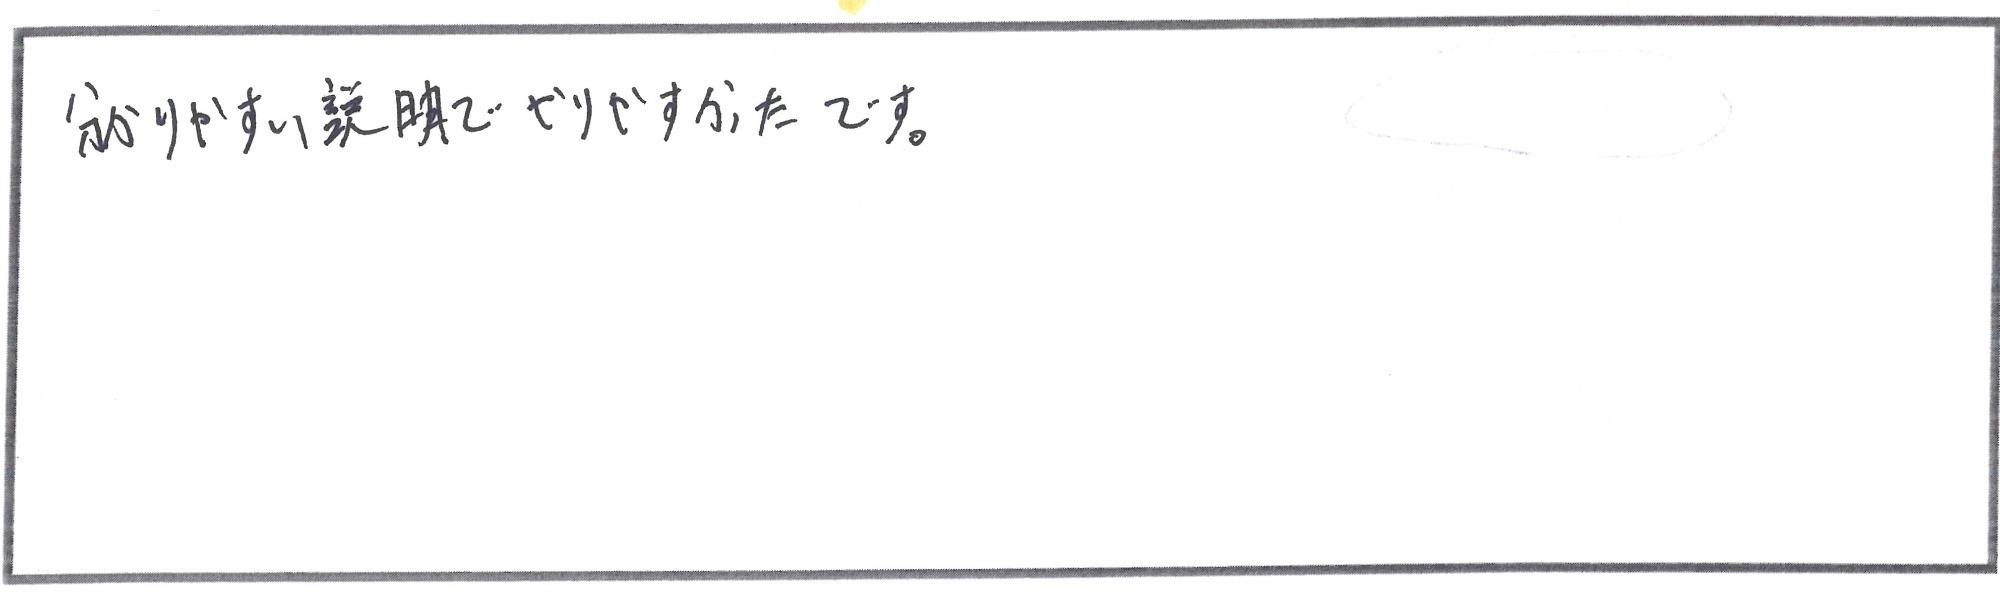 分かりやすい説明でやりやすかったです。